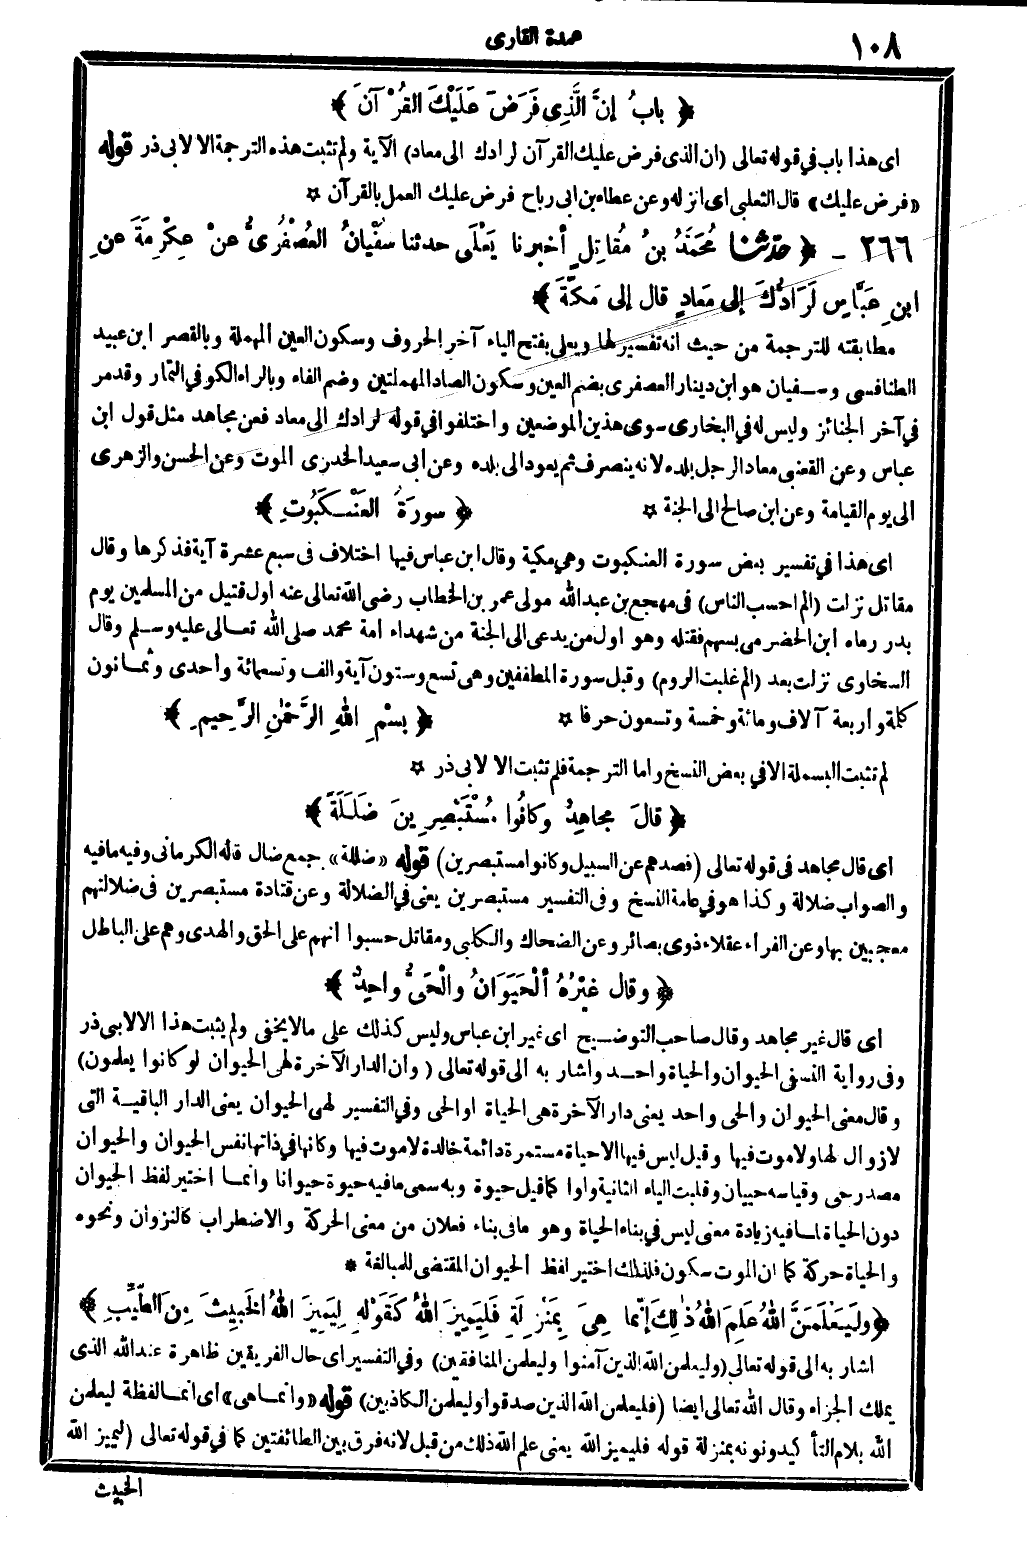 ١٠٨
عمدة القارى
﴿ بابُ إِنَّ الَّذِى فَرَضَ عَلَيْكَ القُرْآنَ ﴾
اى هذا باب فى قوله تعالى (ان الذى فرض عليك القرآن لرادك الى معاد) الآية ولم تثبت هذه الترجمة الا لابى ذر قوله
«فرض عليك» قال الثعلبى اى انزله وعن عطاء بن ابى رباح فرض عليك العمل بالقرآن ✩
٢٦٦ - ﴿ حدثنا مُحَمَّدُ بنُ مُقاتِلٍ أخبرنا يَعْلَى حدثنا سفْيانُ العُصْفُرِىُّ عنْ عِكْرِمَةَ عنِ
ابنِ عبَّاسٍ لَرَادُّكَ إلى مَعادٍ قال إلى مَكَّةَ ﴾
مطابقته للترجمة من حيث انه تفسير لها ويعلى بفتح الياء آخر الحروف وسكون العين المهملة وبالقصر ابن عبيد
الطنافسى وسفيان هو ابن دينار العصفرى بضم العين وسكون الصاد المهملتين وضم الفاء وبالراء الكوفى التمار وقد مر
فى آخر الجنائز وليس له فى البخارى سوى هذين الموضعين واختلفوا فى قوله لرادك الى معاد فعن مجاهد مثل قول ابن
عباس وعن القعنبى معاد الرجل بلده لانه ينصرف ثم يعود الى بلده وعن ابى سعيد الخدرى الموت وعن الحسن والزهرى
الى يوم القيامة وعن ابن صالح الى الجنة ✩
﴿ سورَةُ العَنْكَبُوتِ ﴾
اى هذا فى تفسير بعض سورة العنكبوت وهى مكية وقال ابن عباس فيها اختلاف فى سبع عشرة آية فذكرها وقال
مقاتل نزلت (الم احسب الناس) فى مهجع بن عبدالله مولى عمر بن الخطاب رضى الله تعالى عنه اول قتيل من المسلمين يوم
بدر رماه ابن الحضرمى بسهم فقتله وهو اول من يدعى الى الجنة من شهداء امة محمد صلى الله تعالى عليه وسلم وقال
السخاوى نزلت بعد (الم غلبت الروم) وقبل سورة المطففين وهى تسع وستون آية والف وتسعمائة واحدى وثمانون
كلمة واربعة آلاف ومائة وخمسة وتسعون حرفا ✩
﴿ بسْمِ اللهِ الرَّحْمٰنِ الرَّحِيمِ ﴾
لم تثبت البسملة الا فى بعض النسخ واما الترجمة فلم تثبت الا لابى ذر ✩
﴿ قالَ مجاهِدٌ وكانُوا مُسْتَبْصِرِينَ ضَلَلَةً ﴾
اى قال مجاهد فى قوله تعالى (فصدهم عن السبيل وكانوا مستبصرين) قوله «ضللة» جمع ضال قاله الكرمانى وفيه مافيه
والصواب ضلالة وكذا هو فى عامة النسخ وفى التفسير مستبصرين يعنى فى الضلالة وعن قتادة مستبصرين فى ضلالتهم
معجبين بها وعن الفراء عقلاء ذوى بصائر وعن الضحاك والكلبى ومقاتل حسبوا انهم على الحق والهدى وهم على الباطل
﴿ وقال غيْرُهُ ألْحَيَوَانُ والْحَىُّ واحِدٌ ﴾
اى قال غير مجاهد وقال صاحب التوضيح اى غير ابن عباس وليس كذلك على مالا يخفى ولم يثبت هذا الا لابى ذر
وفى رواية النسفى الحيوان والحياة واحد واشار به الى قوله تعالى (وان الدار الآخرة لهى الحيوان لو كانوا يعلمون)
وقال معنى الحيوان والحى واحد يعنى دار الآخرة هى الحياة او الحى وفى التفسير لهى الحيوان يعنى الدار الباقية التى
لازوال لها ولا موت فيها وقيل ليس فيها الا حياة مستمرة دائمة خالدة لا موت فيها وكانها فى ذاتها نفس الحيوان والحيوان
مصدر حى وقياسه حييان وقلبت الياء الثانية واوا كما قيل حيوة وبه سمى مافيه حيوة حيوانا وانما اختير لفظ الحيوان
دون الحياة لما فيه زيادة معنى ليس فى بناء الحياة وهو مافى بناء فعلان من معنى الحركة والاضطراب كالنزوان ونحوه
والحياة حركة كما ان الموت سكون فلذلك اختير لفظ الحيوان المقتضى للمبالغة *
﴿ ولَيَعْلَمَنَّ اللهُ عَلِمَ اللهُ ذٰلِكَ إنَّما هِىَ بِمَنْزِلَةِ فَلِيَمِيزَ اللهُ كَقَوْلِهِ لِيَمِيزَ اللهُ الخَبِيثَ مِنَ الطَّيِّبِ ﴾
اشار به الى قوله تعالى (وليعلمن الله الذين آمنوا وليعلمن المنافقين) وفى التفسير اى حال الفريقين ظاهرة عند الله الذى
يملك الجزاء وقال الله تعالى ايضا (فليعلمن الله الذين صدقوا وليعلمن الكاذبين) قوله «وانما هى» اى انما لفظة ليعلمن
الله بلام التأكيد ونونه بمنزلة قوله فليميز الله يعنى علم الله ذلك من قبل لانه فرق بين الطائفتين كما فى قوله تعالى (ليميز الله
الخبيث